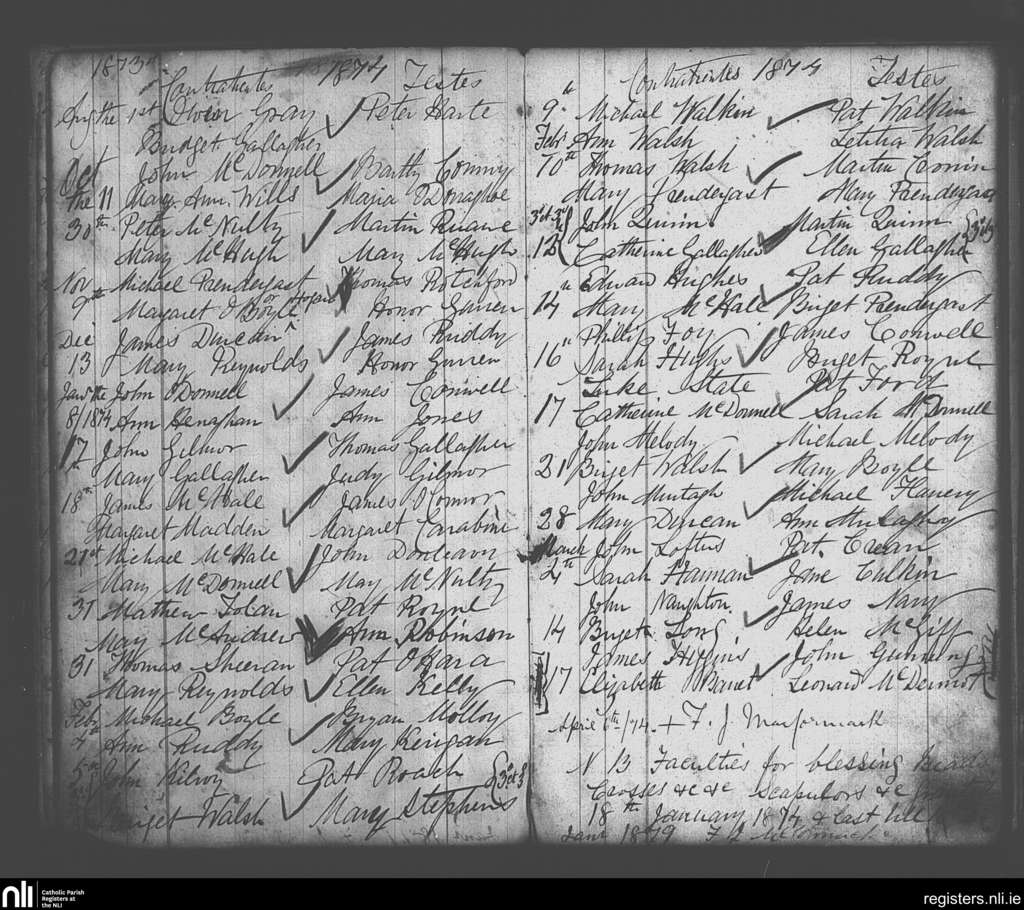 1873
Contrahentes 1874 Testes
Aug the 1st Owen Gray Peter Harte
Bridget Gallagher
Oct John McDonnell Bartly Conmy
the 11 Mary Ann Wills Maria O'Donaghoe
30th Peter McNulty Martin Ruane
Mary McHugh Mary McHugh
Nov Michael Prendergast Thomas Rotchford
9th Margaret O'Boyle or Honor Garren
Dec James Duncan James Ruddy
13 Mary Reynolds Honor Garren
Jany the John O'Donnell James Conwell
8/1874 Ann Henaghan Ann Jones
17 John Gilmor Thomas Gallagher
Mary Gallagher Judy Gilmor
18th James McHale James O'Connor
Margaret Madden Margaret Carabine
21st Michael McHale John Donleavy
Mary McDonnell May McNulty
31 Mathew Tolan Pat Royne
May McAndrew Ann Robinson
31 Thomas Sheeran Pat O'Hara
Mary Reynolds Ellen Kelly
Feby Michael Boyle Bryan Molloy
4th Ann Ruddy Mary Kerigan
5th John Kilroy Pat Roach
Walsh Mary Stephens
Contrahentes 1874 Testes
9th Michael Walkin Pat Walkin
Feby Ann Walsh Letitia Walsh
10th Thomas Walsh Martin Cronin
Mary Prendergast Mary Prendergast
John Quinn Martin Quinn
12 Catherine Gallagher Ellen Gallagher
" Edward Hughes Pat Ruddy
14 Mary McHall Briget Prendergast
" Phillip Foy James Conwell
16 Sarah Hughs Briget Royne
Luke State Pat Ford
17 Catherine McDonnell Sarah McDonnell
John Melody Michael Melody
21 Briget Walsh Mary Boyle
John Murtagh Michael Flanery
28 Mary Duncan Ann
March John Loftus Pat. Crean
2th Sarah Hannan Jane Culkin
John Naughton James Nary
14 Briget Long Helen McGiff
James Higgins John Gunning
17 Elizabeth Barret Leonard McDermot
April 6th/74. + F. J. MacCormack
N B Faculties for blessing beads
Crosses &c &c Scapulars &c
18th January 1874 & last till
Jany 1879 F J McCormack
nli
Catholic Parish
Registers at
the NLI
registers.nli.ie